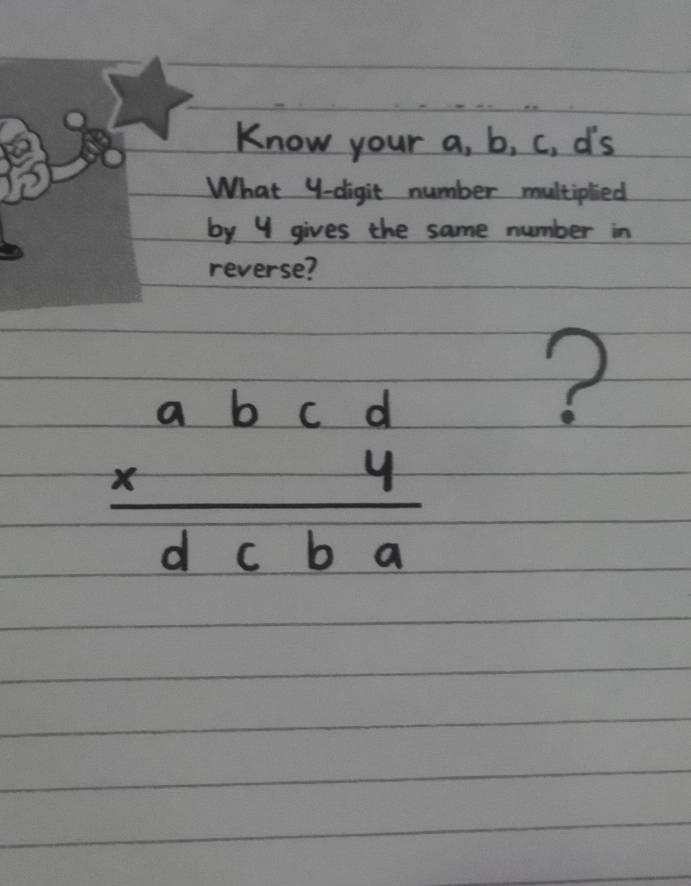 Know your a, b, c, d's
What 4-digit number multiplied
by 4 gives the same number in
reverse?
?
a b c d
x 4
d c b a